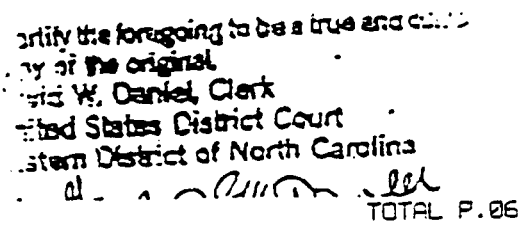 ertify the foregoing to be a true and
py of the original.
W. Daniel, Clerk
ited States District Court
stern District of North Carolina
TOTAL P.06